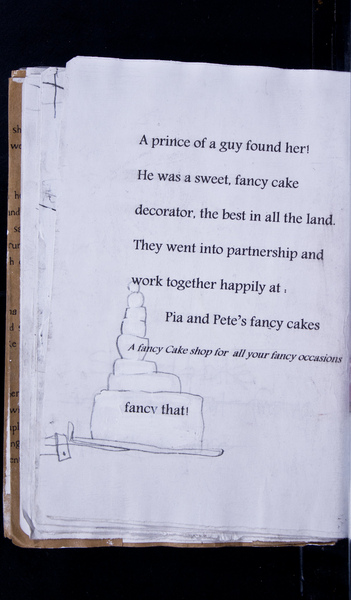 A prince of a guy found her!
He was a sweet, fancy cake
decorator, the best in all the land.
They went into partnership and
work together happily at :
Pia and Pete's fancy cakes
A fancy Cake shop for all your fancy occasions
fancy that!